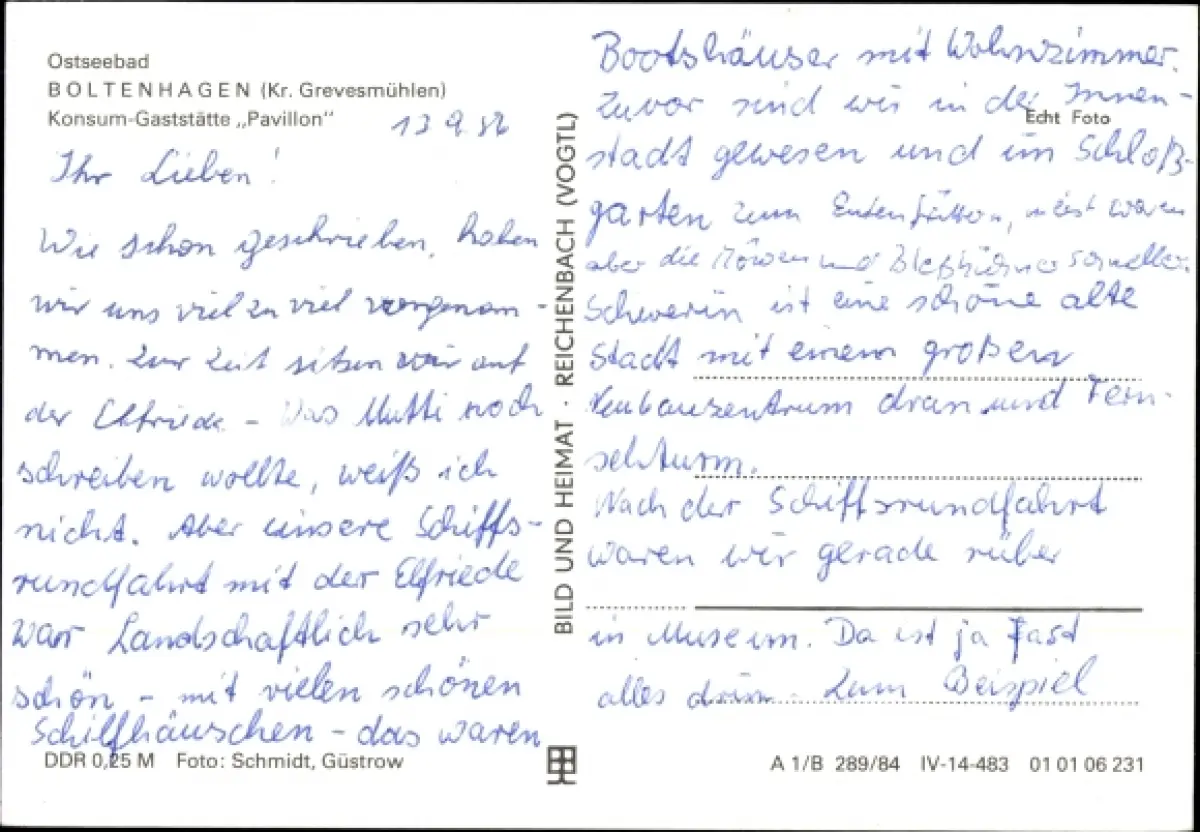 Ostseebad
BOLTENHAGEN (Kr. Grevesmühlen)
Konsum-Gaststätte „Pavillon"
13 9.
Ihr Lieben!
Wie schon geschrieben, haben
wir uns viel zu viel vorgenom-
men. Zur Zeit sitzen wir auf
der Elfriede - Was Mutti noch
schreiben wollte, weiß ich
nicht. Aber unsere Schiffs-
rundfahrt mit der Elfriede
war Landschaftlich sehr
schön - mit vielen schönen
Schilfhäuschen - das waren
DDR 0,25 M Foto: Schmidt, Güstrow
BILD UND HEIMAT · REICHENBACH (VOGTL)
Bootshäuser mit Wohnzimmer.
Zuvor sind wir in der Innen-
Echt Foto
stadt gewesen und im Schloß-
garten zum Entenfüttern, meist waren
aber die Möwen und Bleßhühner schneller.
Schwerin ist eine schöne alte
Stadt mit einem großen
Neubauzentrum dran und Fern-
sehturm.
Nach der Schiffsrundfahrt
waren wir gerade rüber
in Museum. Da ist ja fast
alles drin - Zum Beispiel
A 1/B 289/84 IV-14-483 01 01 06 231